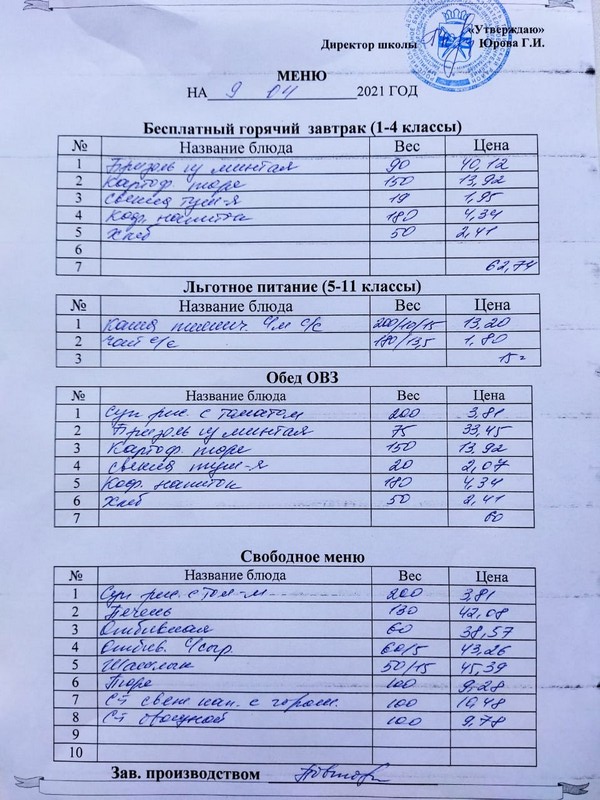 «Утверждаю»
Директор школы Юрова Г.И.
МЕНЮ
НА 9 04 2021 ГОД
Бесплатный горячий завтрак (1-4 классы)
№ Название блюда Вес Цена
1 Бризоль из минтая 90 40,12
2 Картоф. пюре 150 13,92
3 Свекла туш-я 19 1,95
4 Коф. напиток 180 4,34
5 Хлеб 50 2,41
6
7 62,74
Льготное питание (5-11 классы)
№ Название блюда Вес Цена
1 Каша пшенич. 13,20
2 Чай с/с 180/13,5 1,80
3 15=
Обед ОВЗ
№ Название блюда Вес Цена
1 Суп рис. с томатом 200 3,81
2 Бризоль из минтая 75 33,45
3 Картоф. пюре 150 13,92
4 Свекла туш-я 20 2,07
5 Коф. напиток 180 4,34
6 Хлеб 50 2,41
7 60
Свободное меню
№ Название блюда Вес Цена
1 Суп рис. с том-м 200 3,81
2 Печень 130 42,08
3 Отбивная 60 38,57
4 Отбив. с/сыр. 60/5 43,26
5 Шашлык 50/15 45,39
6 Пюре 100 9,28
7 С-т свеж кап. с горош. 100 10,48
8 С-т овощной 100 9,78
9
10
Зав. производством